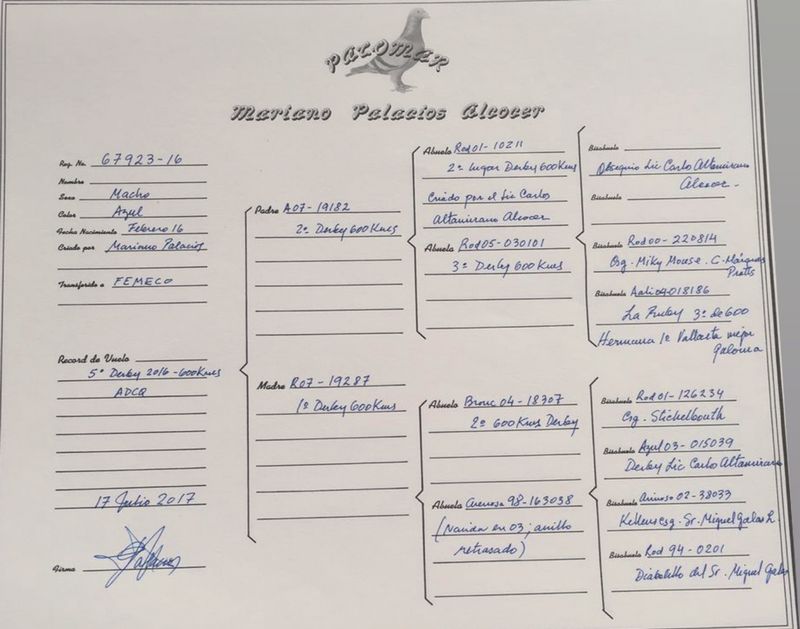 PALOMAR
Mariano Palacios Alcocer
Reg. No. 67923-16
Nombre
Sexo Macho
Color Azul
Fecha Nacimiento Febrero 16
Criado por Mariano Palacios
Transferido a FEMECO
Record de Vuelo
5º Derby 2016-600Kms
ADCQ
17 Julio 2017
Firma
Padre A07-19182
2º Derby 600Kms
Madre R07-19287
1º Derby 600Kms
Abuelo Rod 01-10211
2º Lugar Derby 600Kms
Criado por el Lic Carlos
Altamirano Alcocer
Abuela Rod 05-030101
3º Derby 600Kms
Abuelo Bronc 04-18307
2º 600Kms Derby
Abuela 98-163038
(Nacida en 03; anillo
retrasado)
Bisabuelo
Obsequio Lic Carlo Altamirano
Alcocer.
Bisabuela
Bisabuelo Rod 00-220814
Csg. Miky Mouse. C. Márquez
Pratts
Bisabuela 04-018186
La 3º de 600
Hermana 1º Vallarta mejor
paloma
Bisabuelo Rod 01-126234
Csg. Stichelbouth
Bisabuela Azul 03-015039
Derby Lic Carlo Altamirano
Bisabuelo 02-38033
Csg. Sr. Miguel Galas L.
Bisabuela Rod 94-0201
Diabolillo del Sr. Miguel Galas